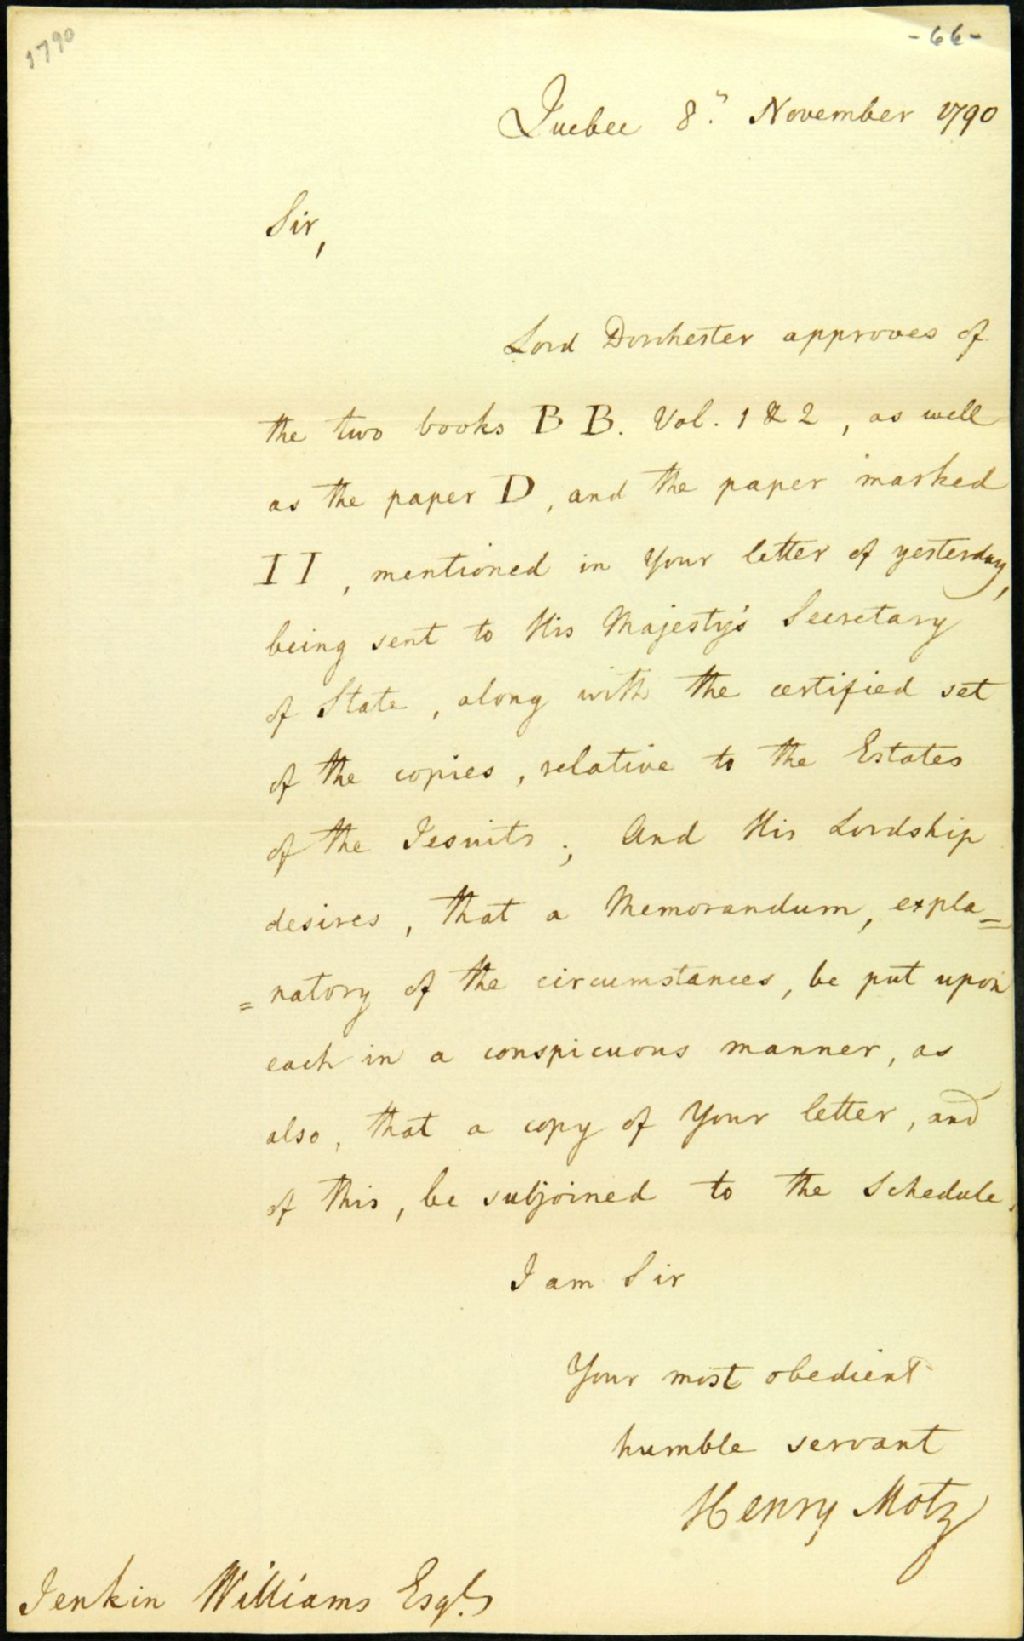 1790
-66-
Quebec 8th November 1790
Sir,
Lord Dorchester approves of
the two books B B. Vol. 1 & 2, as well
as the paper D, and the paper marked
I I, mentioned in Your letter of yesterday,
being sent to His Majesty's Secretary
of State, along with the certified set
of the copies, relative to the Estates
of the Jesuits; And His Lordship
desires, that a Memorandum, expla=
=natory of the circumstances, be put upon
each in a conspicuous manner, as
also, that a copy of Your letter, and
of this, be subjoined to the Schedule.
I am Sir
Your most obedient
humble servant
Henry Motz
Jenkin Williams Esqr.